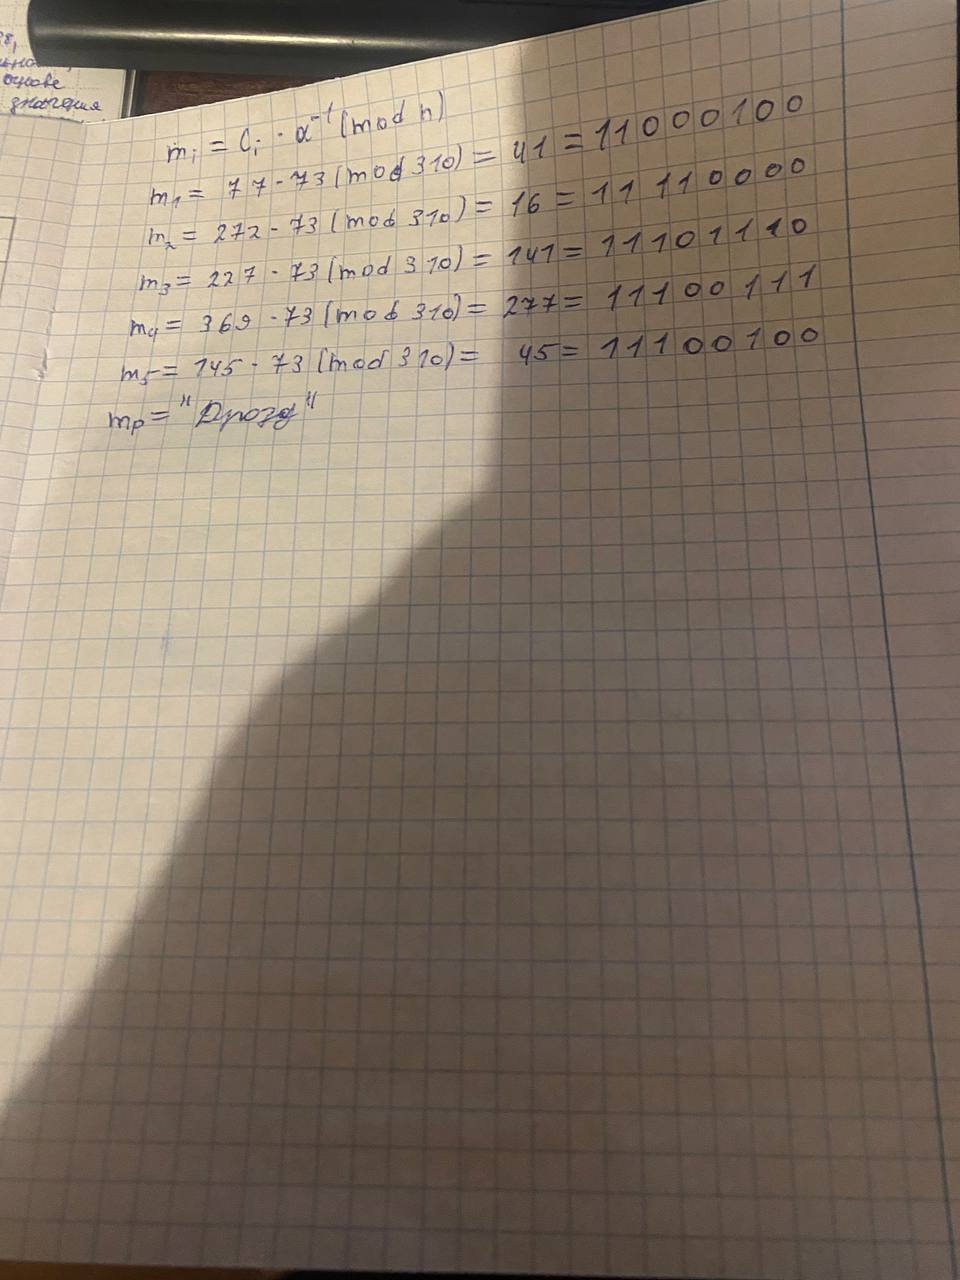 основе
значения
m_i = C_i · a^{-1} (mod n)
m_1 = 77 · 73 (mod 310) = 41 = 11000100
m_2 = 272 · 73 (mod 310) = 16 = 11110000
m_3 = 227 · 73 (mod 310) = 141 = 11101110
m_4 = 369 · 73 (mod 310) = 277 = 11100111
m_5 = 145 · 73 (mod 310) = 45 = 11100100
m_p = "Дрозд"